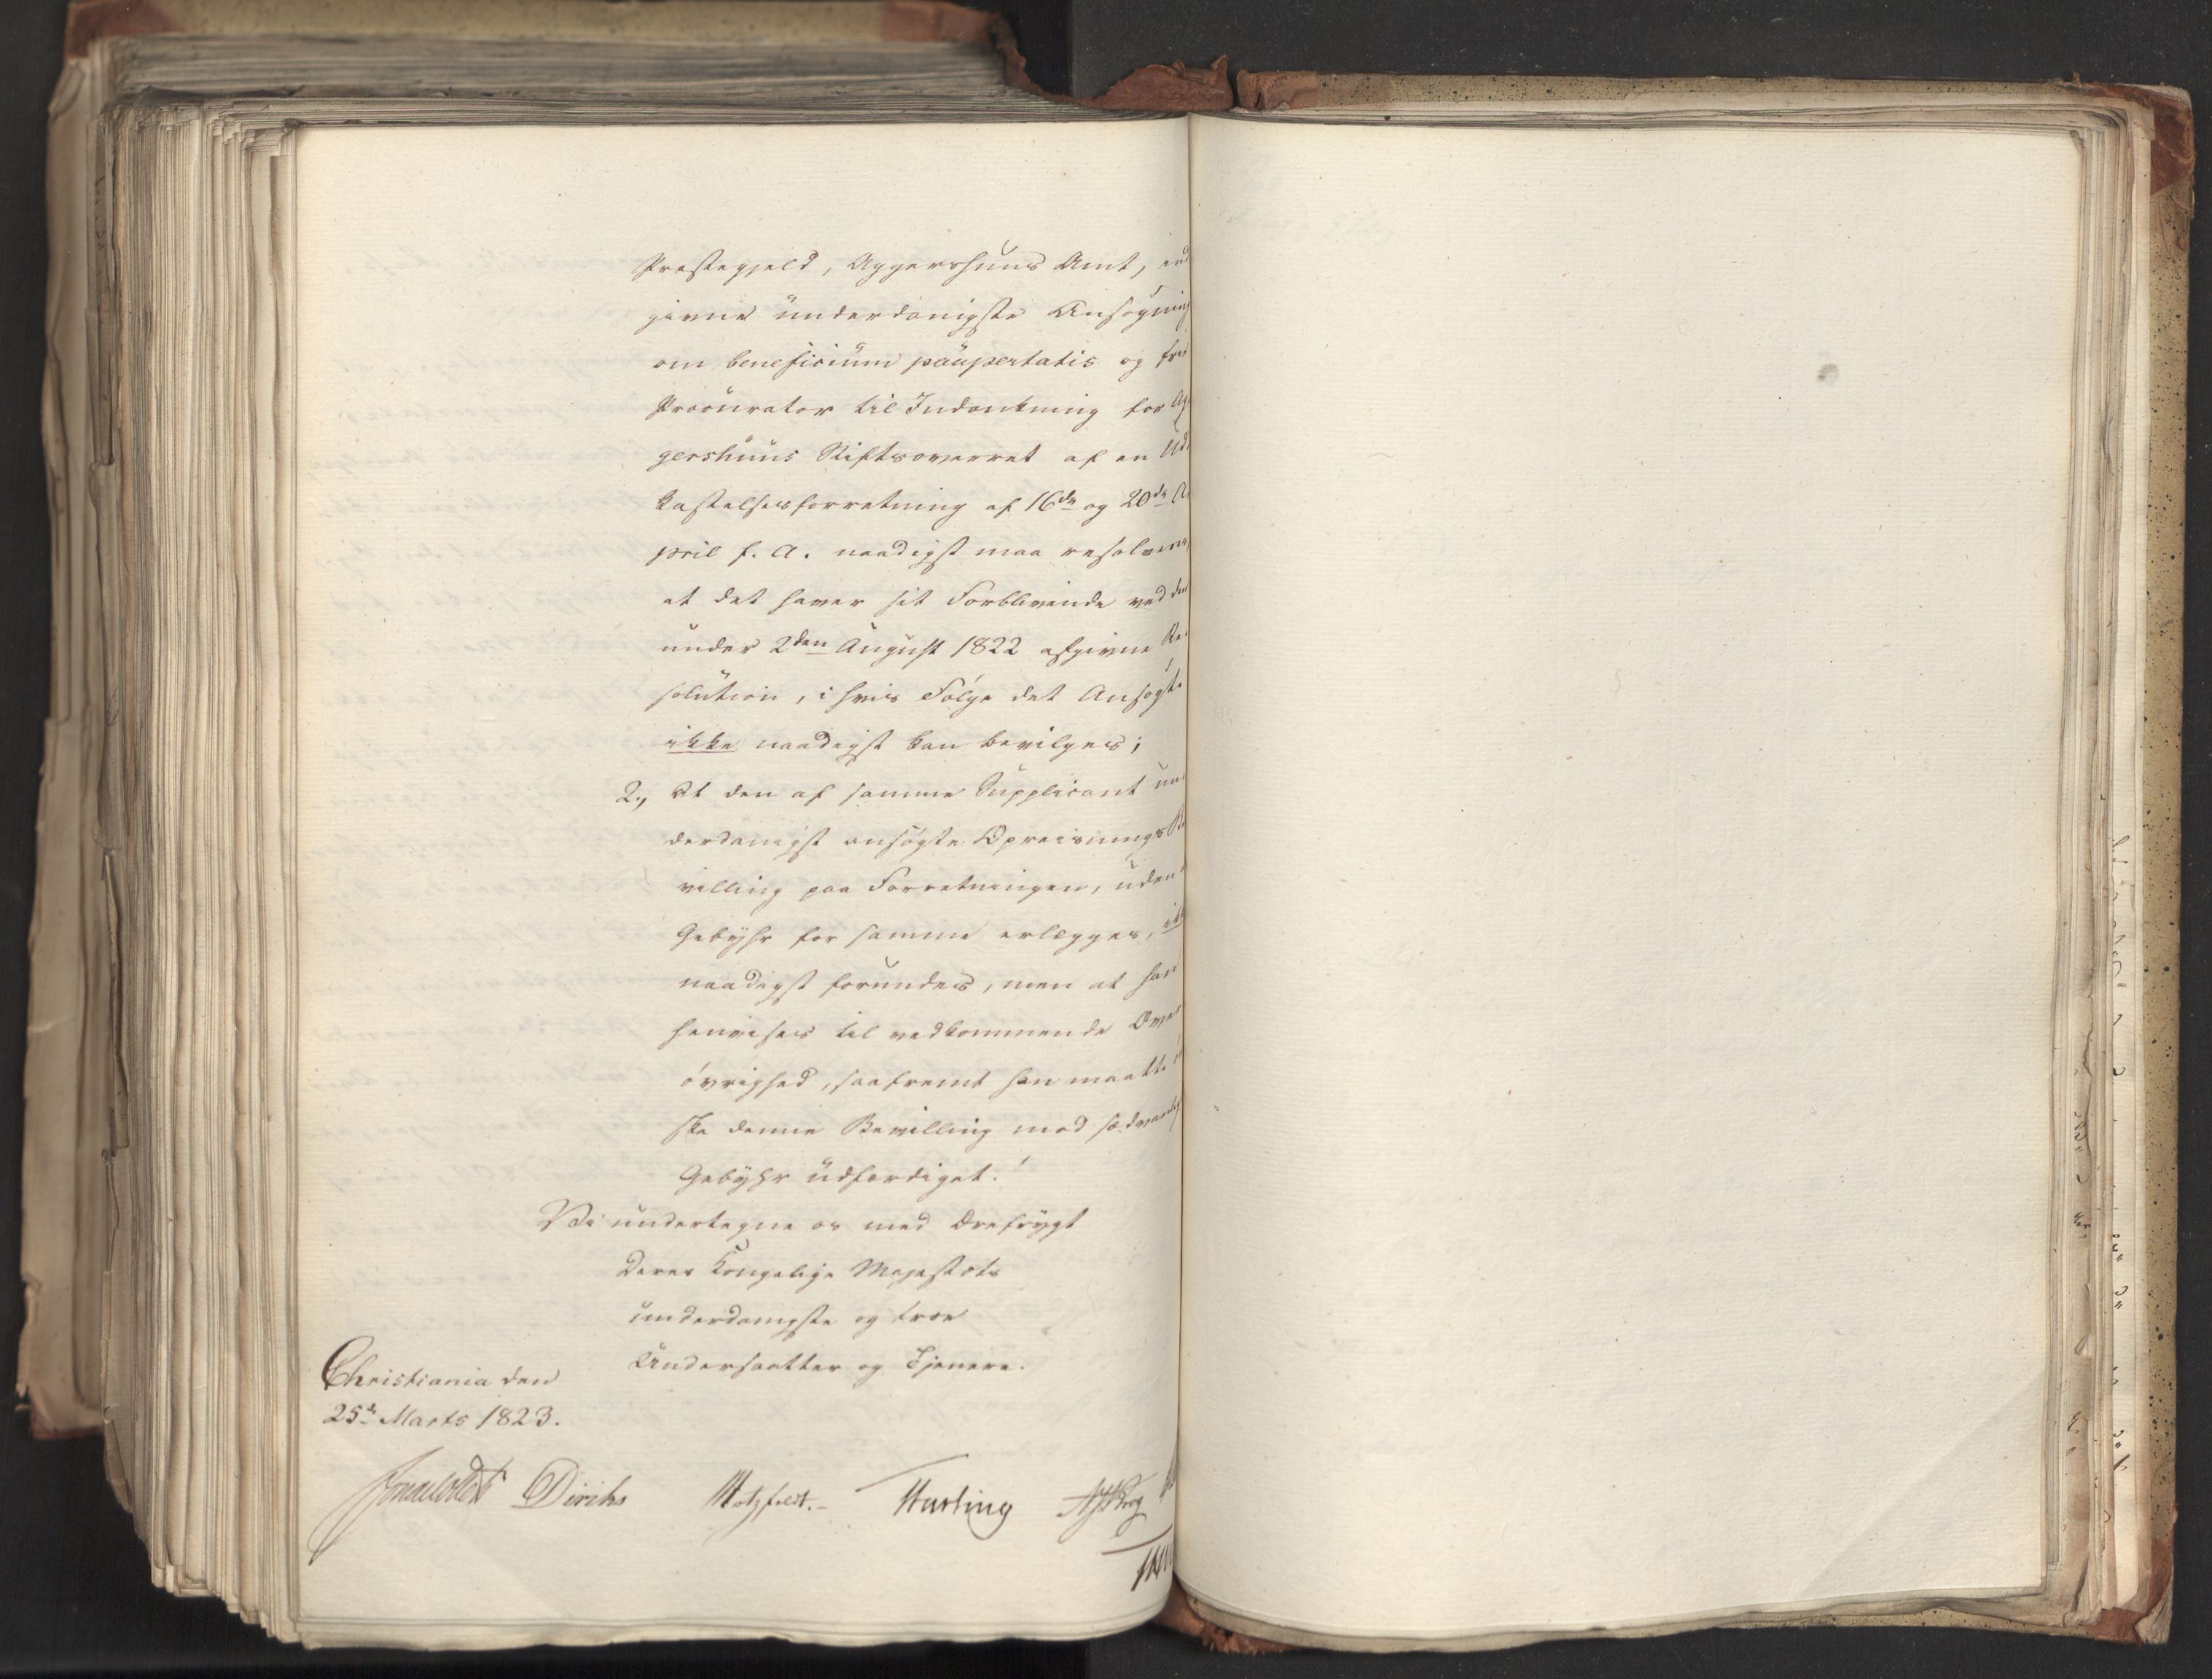 Præstegjeld, Aggershuus Amt, ind
givne underdanigste Ansøgning
om beneficium paupertatis og frie
Procurator til Indankning for Ag
gershuus Stiftsoverret af en Ud
kastelsesforretning af 16de og 20de A
pril f. A. naadigst maa resolveres
at det haver sit Forblivende ved den
under 2den August 1822 afgivne Re
solution, i hvis Følge det Ansøgte
ikke naadigst kan bevilges;
2., At den af samme Supplicant un
derdanigst ansøgte Opreisnings Be
villing paa Forretningen, uden
Gebyhr for samme erlægges, ikke
naadigst forundes, men at han
henvises til vedkommende Over
øvrighed, saafremt han maatte
ske denne Bevilling mod sædvanlig
Gebyhr udfærdiget.!
Vi undertegne os med Ærefrygt
Deres Kongelige Majestæts
underdanigste og troe
Undersaatter og Tjenere.
Christiania den
25de Marts 1823.
Jonas Collett Diriks Motzfeldt. Krog